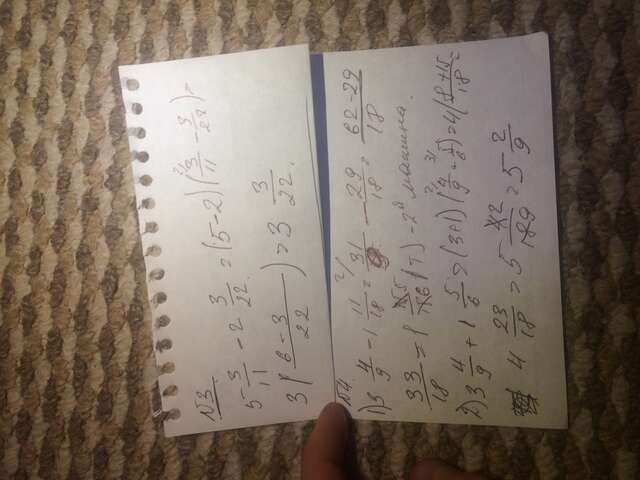 №3
5 3/11 - 2 3/22 = (5-2) (2/ 3/11 - 3/22) =
3 ( 6-3/22 ) = 3 3/22.
№4
1) 3 4/9 - 1 11/18 = 2/ 31/9 - 29/18 = 62-29/18
33/18 = 1 15 5/18 6 (т) - 2я машина.
2) 3 4/9 + 1 5/6 = (3+1) (2/ 4/9 + 3/ 5/6) = 4 ( 8+15/18 =
4 23/18 = 5 4 2/18 9 = 5 2/9